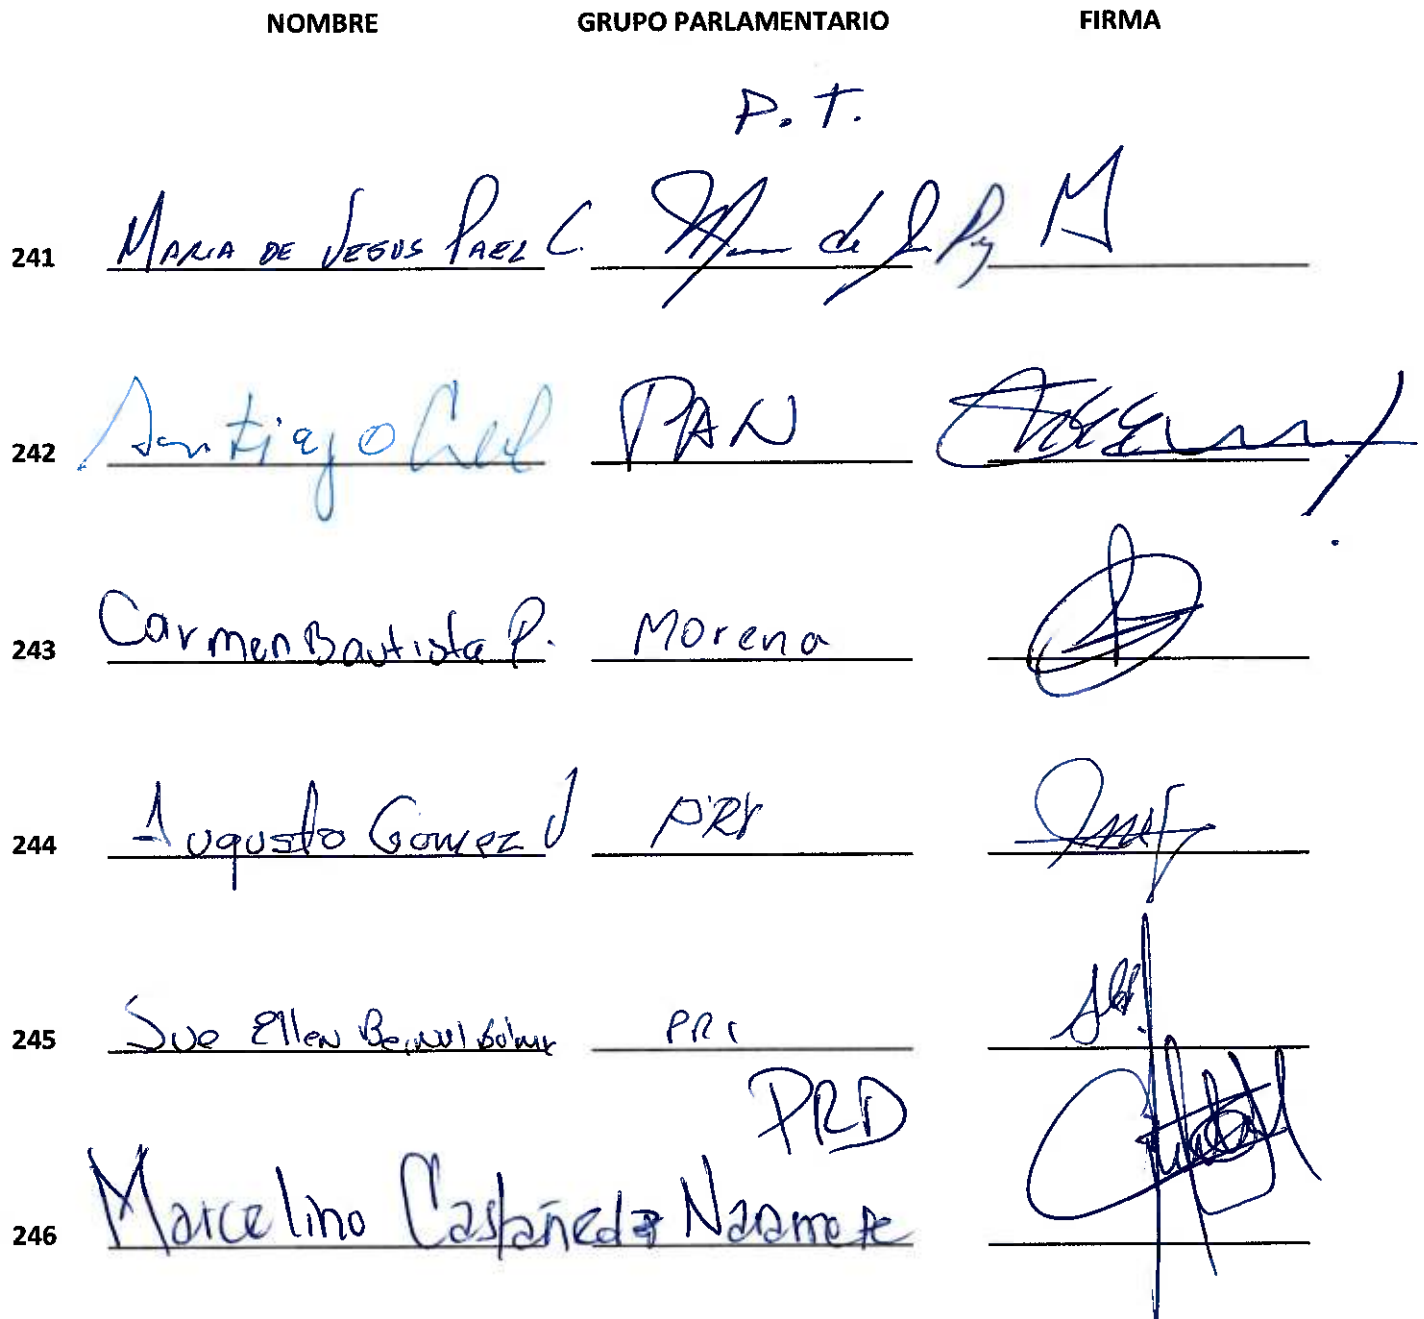 NOMBRE GRUPO PARLAMENTARIO FIRMA
P. T.
241 MARIA DE JESUS PAEZ C.
242 Santiago Creel PAN
243 Carmen Bautista P. Morena
244 Augusto Gomez V PRI
245 Sue Ellen Bernal Bolnik PRI
PRD
246 Marcelino Castañeda Navarrete